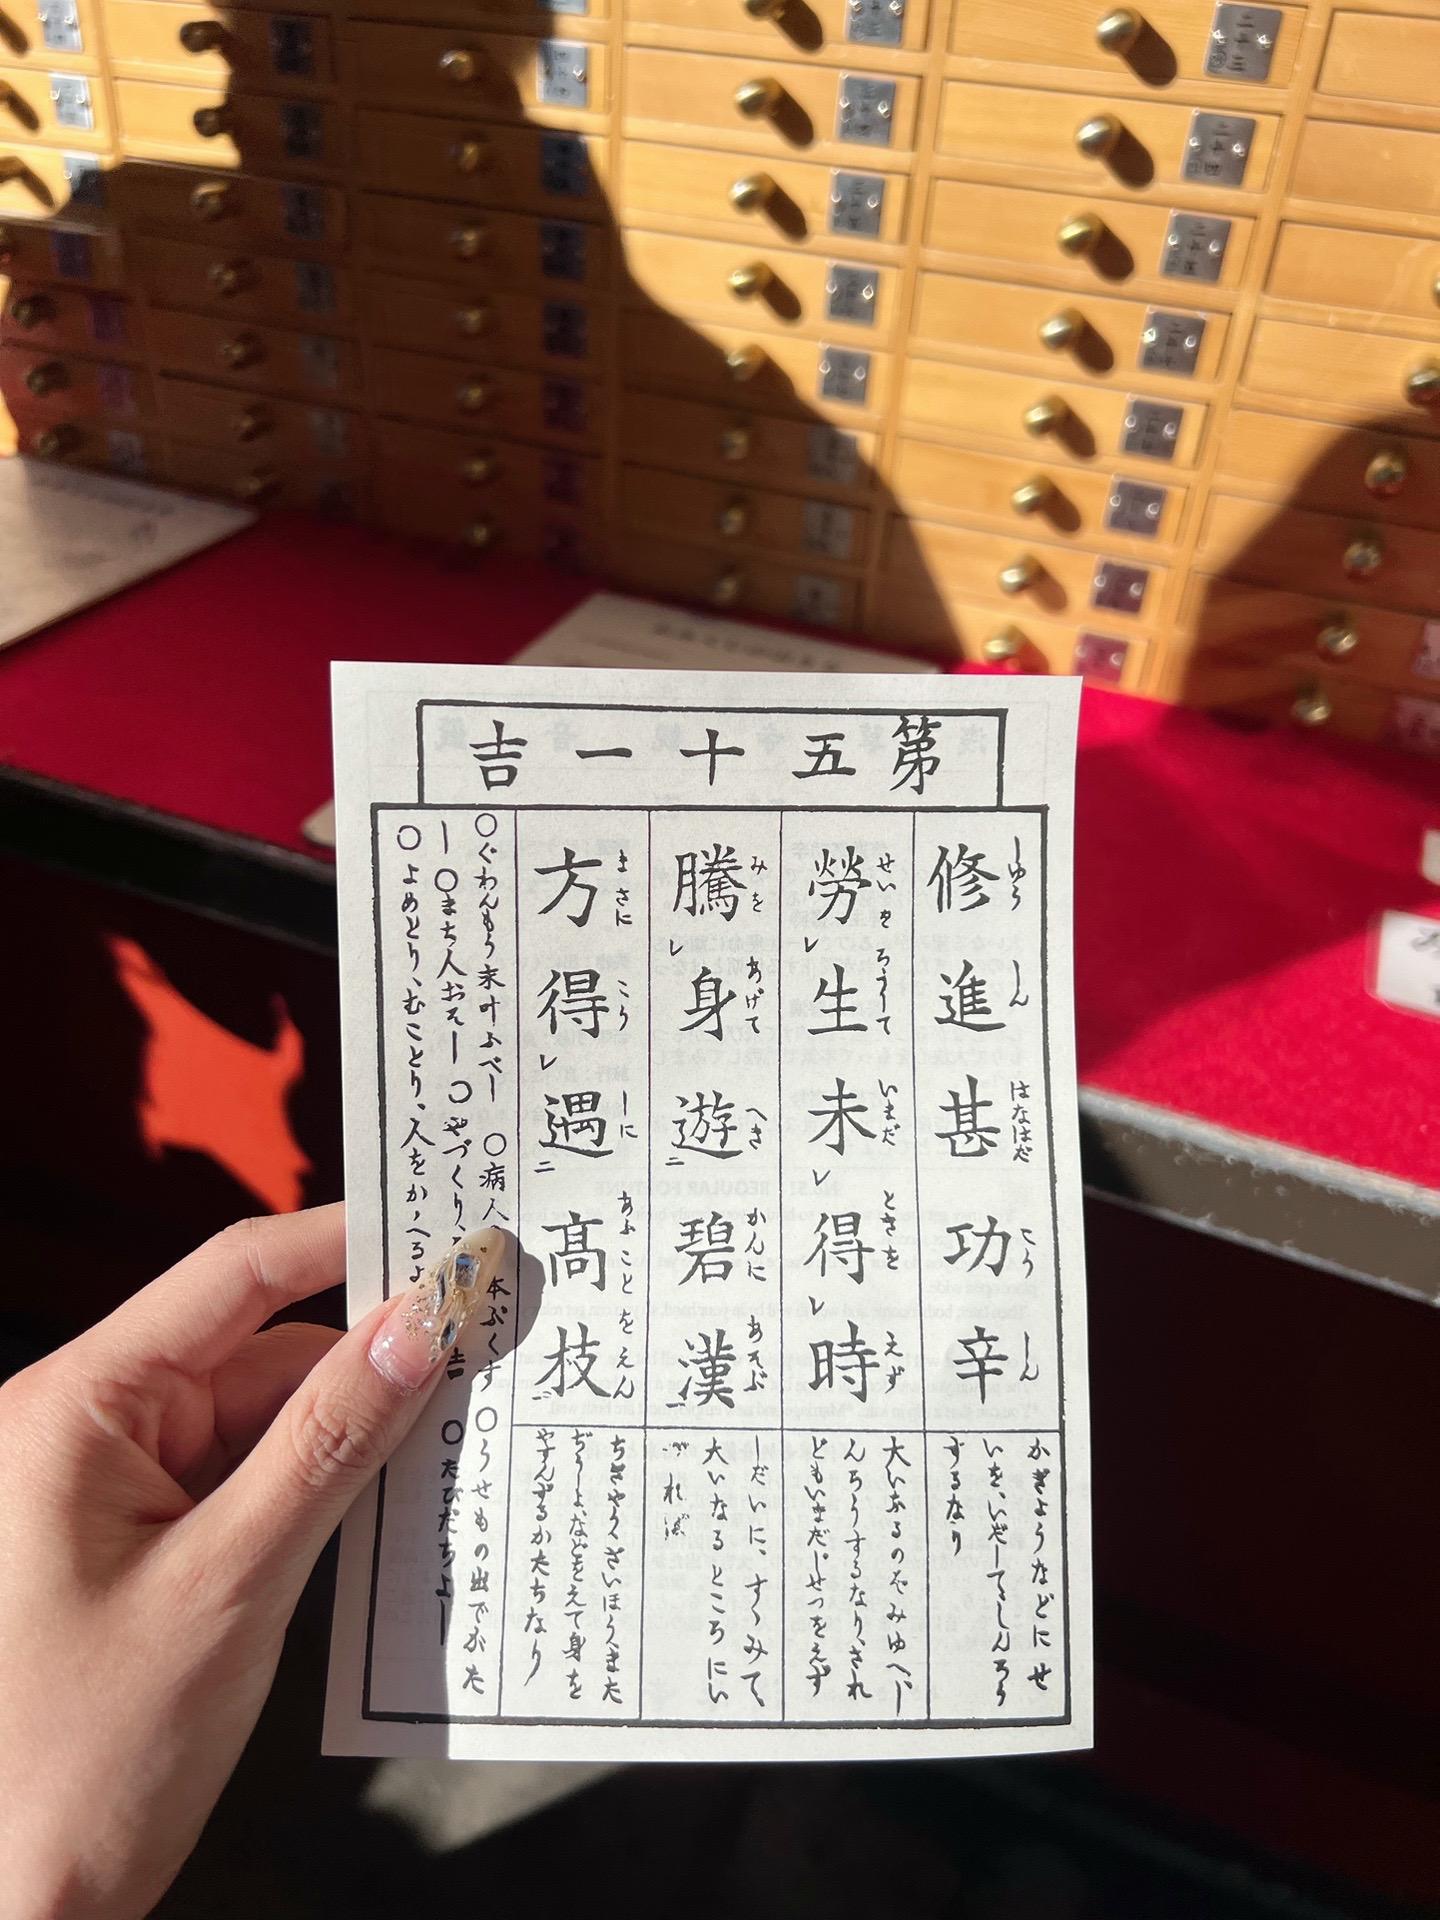 第五十一吉
修進甚功辛
しゅう しん はなはだ こう しん
かぎようなどにせ
いを、いだしてしんろう
するなり
勞レ生未レ得レ時
せいを ろうして いまだ ときを えず
大いなるのぞみゆへし
んろうするなり、され
どもいまだじせつをえず
騰レ身遊二碧漢一
みを あげて へき かんに あそぶ
しだいに、すゝみて、
大いなるところにい
方得レ遇二高枝一
まさに こう しに あふことをえん
ちぎやう、ざいほう、また
ぢうしよ、などをえて身を
やすんずるかたちなり
○ぐわんもう末叶ふべし ○病人 本ぷくす ○うせもの出でがた
し ○まち人おそし ○やづくり、 吉 ○たびだちよし
○よめとり、むことり、人をかゝへるよ
二十三
二十四